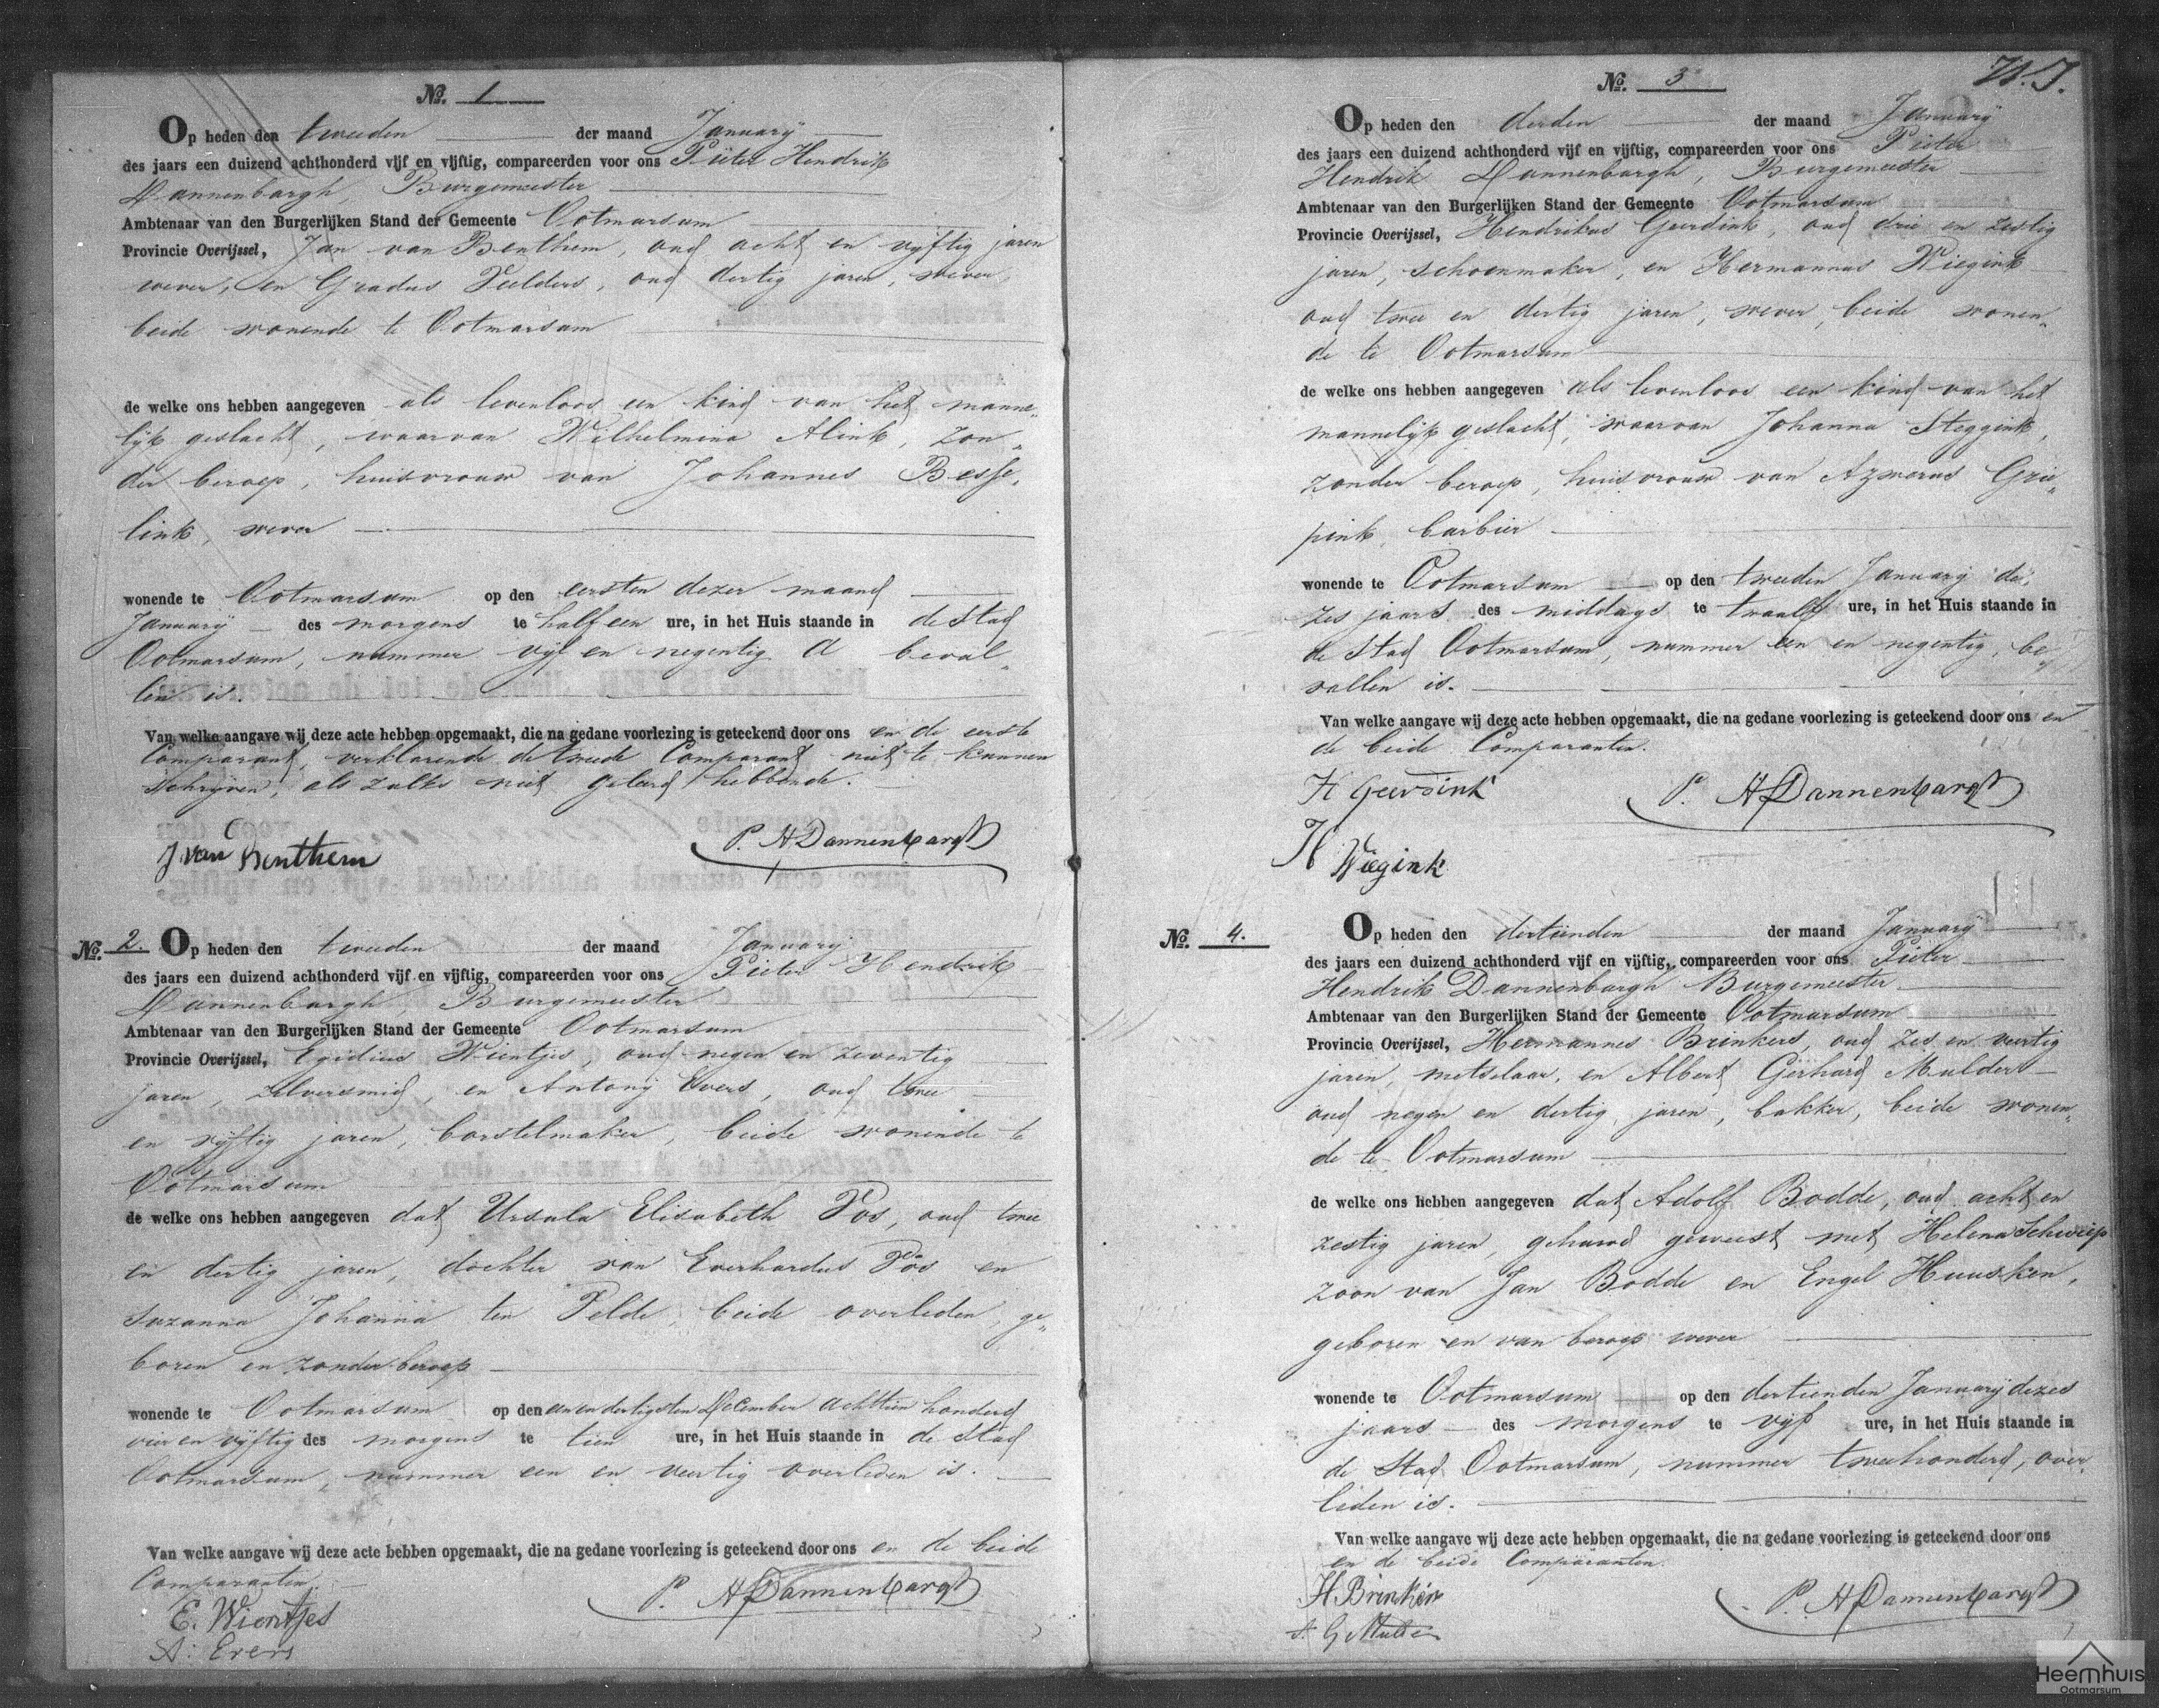 No. 1
Op heden den tweeden der maand January
des jaars een duizend achthonderd vijf en vijftig, compareerden voor ons Pieter Hendrik
Dannenbargh, Burgemeester
Ambtenaar van den Burgerlijken Stand der Gemeente Ootmarsum
Provincie Overijssel, Jan van Benthem, oud acht en vyftig jaren
wever, en Gradus Velders, oud dertig jaren, wever,
beide wonende te Ootmarsum
de welke ons hebben aangegeven als levenloos een kind van het manne„
lyk geslacht, waarvan Wilhelmina Alink, zon„
der beroep, huisvrouw van Johannes Besse„
link, wever
wonende te Ootmarsum op den eersten dezer maand
January des morgens te half een ure, in het Huis staande in de Stad
Ootmarsum, nummer vyf en negentig a beval„
len is.
Van welke aangave wij deze acte hebben opgemaakt, die na gedane voorlezing is geteekend door ons en de eerste
Comparant, verklarende de tweede Comparant niet te kunnen
schryven, als zulks niet geleerd hebbende.
J van Benthem P. H Dannenbargh
No. 2. Op heden den tweeden der maand January
des jaars een duizend achthonderd vijf en vijftig, compareerden voor ons Pieter Hendrik
Dannenbargh, Burgemeester
Ambtenaar van den Burgerlijken Stand der Gemeente Ootmarsum
Provincie Overijssel, Egidius Wientjes, oud negen en zeventig
jaren, zilversmid, en Antony Evers, oud twee
en vyftig jaren, borstelmaker, beide wonende te
Ootmarsum
de welke ons hebben aangegeven dat Ursula Elisabeth Vos, oud twee
en dertig jaren, dochter van Everhardus Vos en
Suzanna Johanna ten Velde, beide overleden, ge„
boren en zonder beroep
wonende te Ootmarsum op den een en dertigsten December achttien honderd
vier en vyftig des morgens te tien ure, in het Huis staande in de Stad
Ootmarsum, nummer een en veertig overleden is.
Van welke aangave wij deze acte hebben opgemaakt, die na gedane voorlezing is geteekend door ons en de beide
Comparanten.
P. H Dannenbargh
E. Wientjes
A: Evers
No. 3
Op heden den derden der maand January
des jaars een duizend achthonderd vijf en vijftig, compareerden voor ons Pieter
Hendrik Dannenbargh, Burgemeester
Ambtenaar van den Burgerlijken Stand der Gemeente Ootmarsum
Provincie Overijssel, Hendrikus Geerdink, oud drie en zestig
jaren, schoenmaker, en Hermannus Wiegink
oud twee en dertig jaren, wever, beide wonen„
de te Ootmarsum
de welke ons hebben aangegeven als levenloos een kind van het
mannelyk geslacht, waarvan Johanna Steggink,
zonder beroep, huisvrouw van Azwerus Grie„
pink, barbier
wonende te Ootmarsum op den tweeden January de„
zes jaars des middags te twaalf ure, in het Huis staande in
de Stad Ootmarsum, nummer een en negentig, be„
vallen is.
Van welke aangave wij deze acte hebben opgemaakt, die na gedane voorlezing is geteekend door ons en
de beide Comparanten.
H Geerdink P. H Dannenbargh
H Wiegink
No. 4. Op heden den dertienden der maand January
des jaars een duizend achthonderd vijf en vijftig, compareerden voor ons Pieter
Hendrik Dannenbargh Burgemeester
Ambtenaar van den Burgerlijken Stand der Gemeente Ootmarsum
Provincie Overijssel, Hermannes Brinkers, oud zes en veertig
jaren, metselaar, en Albert Gerhard Mulder
oud negen en dertig jaren, bakker, beide wonen„
de te Ootmarsum
de welke ons hebben aangegeven dat Adolf Bodde, oud acht en
zestig jaren, gehuwd geweest met Helena Schreip
zoon van Jan Bodde en Engel Huusken,
geboren en van beroep wever
wonende te Ootmarsum op den dertienden January dezes
jaars des morgens te vyf ure, in het Huis staande in
de Stad Ootmarsum, nummer tweehonderd, over„
leden is.
Van welke aangave wij deze acte hebben opgemaakt, die na gedane voorlezing is geteekend door ons
en de beide Comparanten.
H. Brinkers P. H Dannenbargh
A. G Mulder
Heemhuis
Ootmarsum